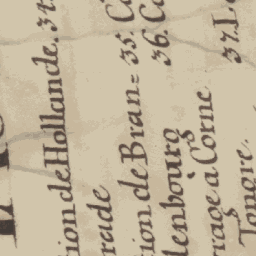 tion de Hollande. 34.
rade
tion de Bran= 35. C
lenbourg 36. C
rrage à Corne
Tongre. 37. L